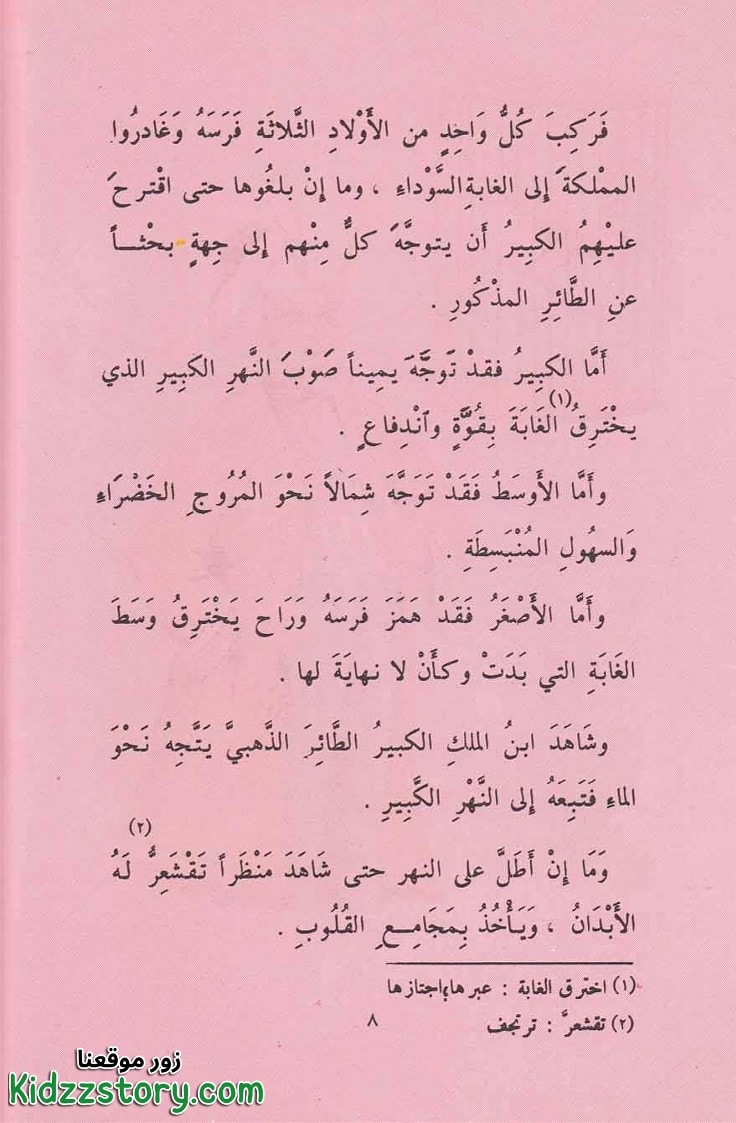 فَرَكِبَ كُلُّ وَاحِدٍ من الأَوْلادِ الثَّلاثَةِ فَرَسَهُ وَغَادرُوا
الممْلكةَ إلى الغابةِ السَّوْداءِ ، وما إنْ بلغُوها حتى اقْترحَ
عليْهِمُ الكبِيرُ أَن يتوجَّهَ كلٌّ مِنْهم إلى جِهةٍ بحْثـاً
عنِ الطَّائِرِ المذْكُورِ .
أَمَّا الكبِيرُ فقدْ تَوجَّهَ يمِيناً صَوْبَ النَّهرِ الكبِيرِ الذي
يخْتَرِقُ (١) الغَابَةَ بِقُوَّةٍ وآنْدِفاعٍ .
وأَمَّا الأَوسَطُ فَقَدْ تَوَجَّهَ شِمَالاً نَحْوَ المُرُوجِ الخَضْرَاءِ
وَالسهُولِ المُنْبَسِطَةِ .
وأَمَّا الأَصْغَرُ فَقَدْ هَمَزَ فَرَسَهُ وَرَاحَ يَخْتَرِقُ وَسَطَ
الغَابَةِ التي بَدَتْ وكأَنْ لا نهايَةَ لها .
وشَاهَدَ ابنُ الملكِ الكبيرُ الطَّائِرَ الذَّهبيَّ يَتَّجِهُ نَحْوَ
الماءِ فَتَبِعَهُ إلى النَّهْرِ الكَّبِيرِ .
وَمَا إنْ أَطَلَّ على النهرِ حتى شَاهَدَ مَنْظَراً تَقْشَعِرُّ (٢) لَهُ
الأَبْدَانُ ، وَيَأْخُذُ بِمَجَامِـعِ القُلُوبِ .
(١) اخترق الغابة : عبرها، اجتازها
(٢) تقشعرَّ : ترتجف
٨
زور موقعنا
Kidzzstory.com